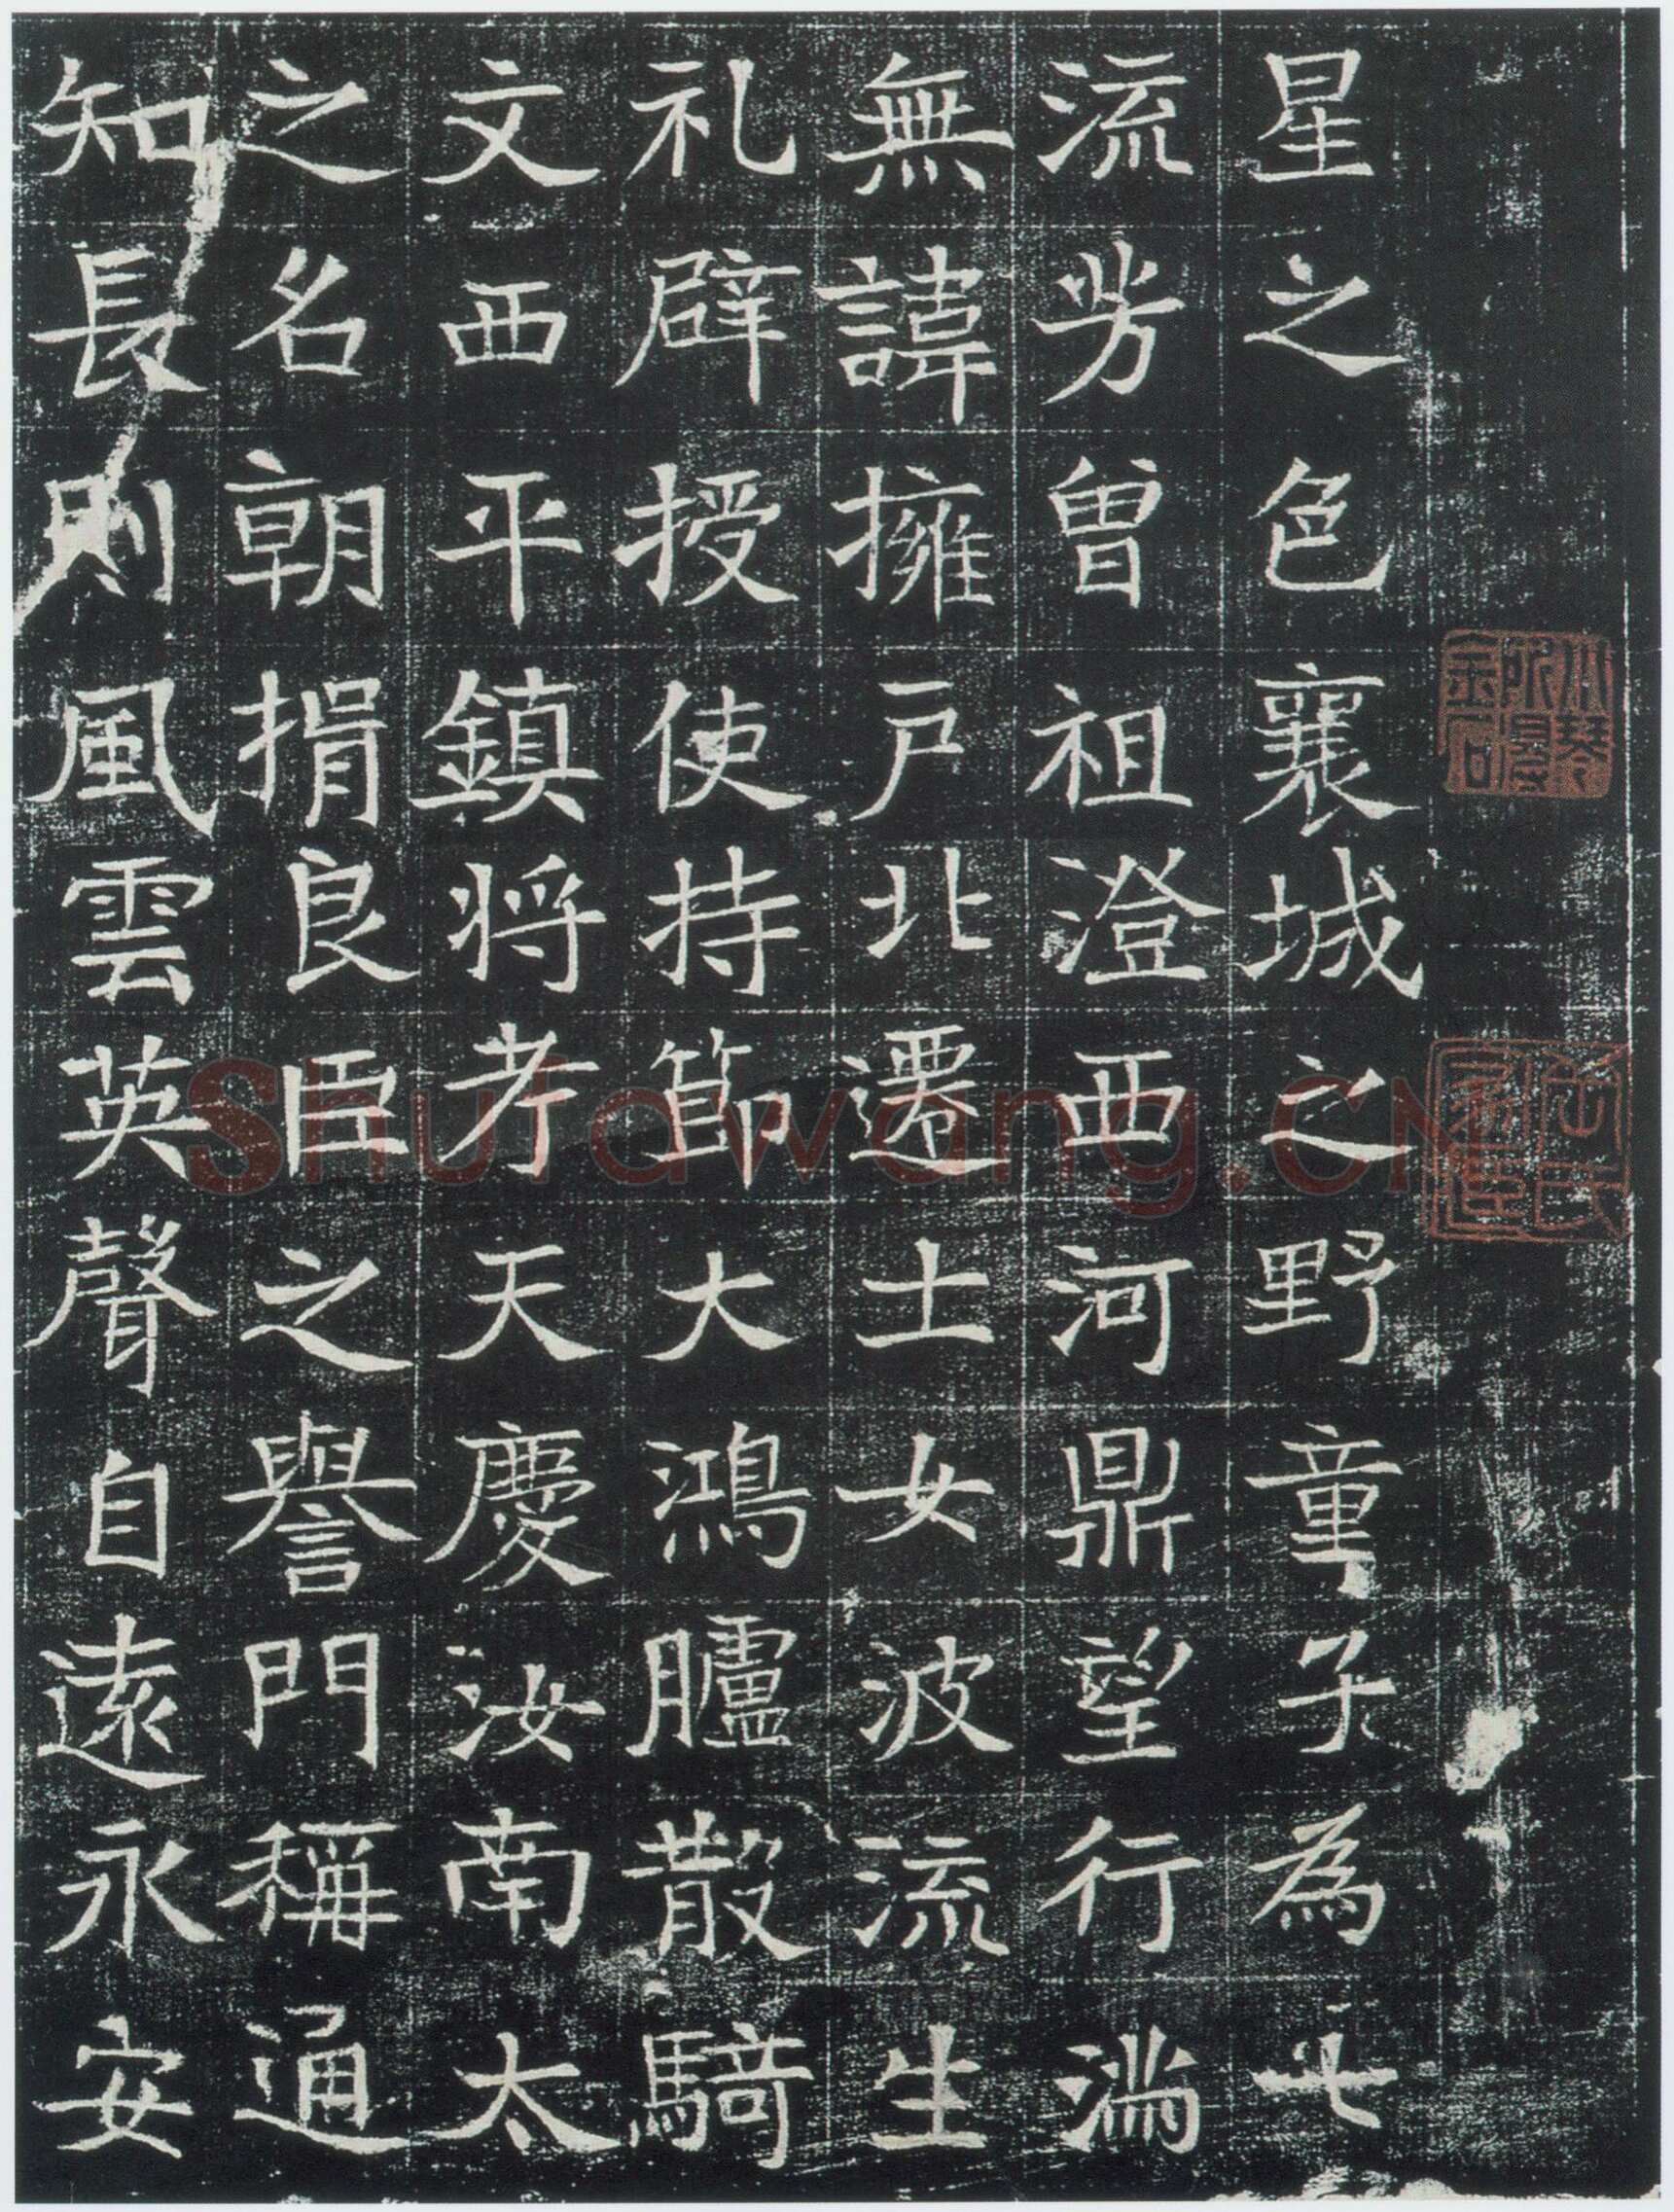 星之色襄城之野童子為七
流芳曾祖澄西河鼎望行滿
無諱擁戶北遷士女波流生
礼辟授使持節大鴻臚散騎
文西平鎮将考天慶汝南太
之名朝捐良臣之譽門稱通
知長則風雲英聲自遠永安
小琴所得金石
Shufawang.CN